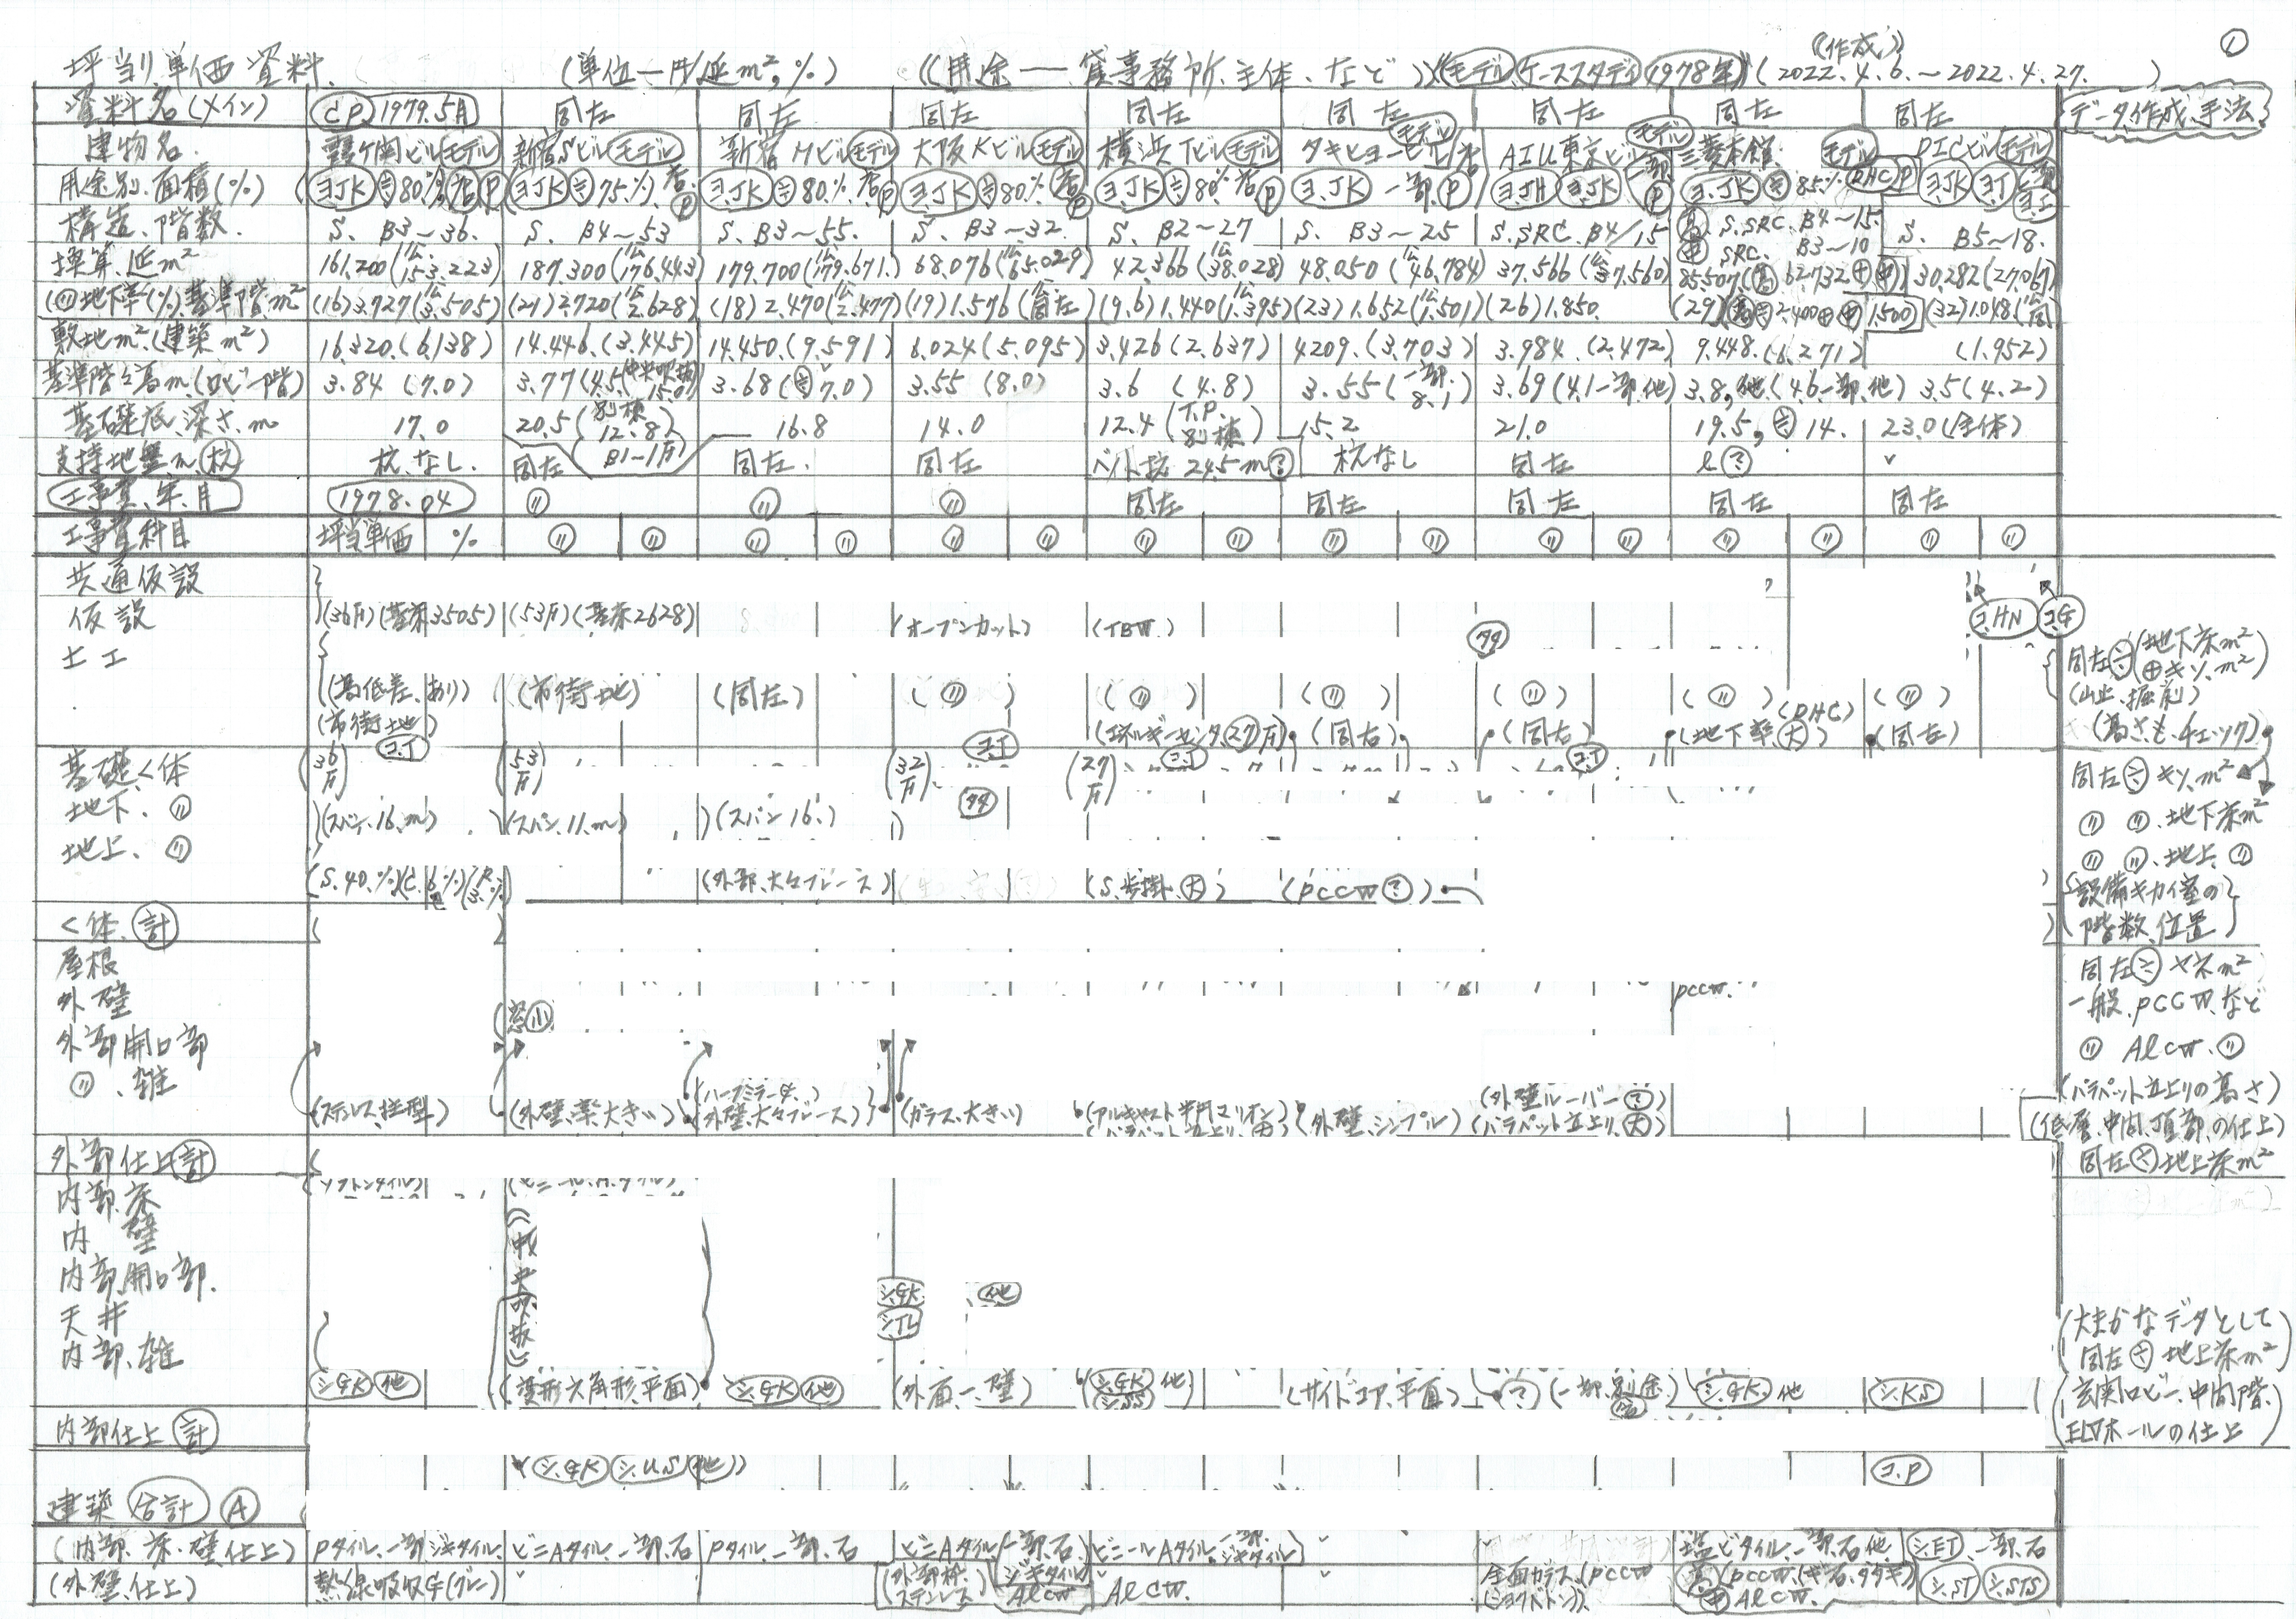 坪当り単価資料. (単位—円/延m²,%) (用途——貸事務所.主体.など) モデル ケーススタディ 1978年 (2022.4.6.～2022.4.27. ) 《作成》 ①
資料名(メイン) CP 1979.5月 同左 同左 同左 同左 同左 同左 同左 同左 データ作成.手法
建物名. 霞ケ関ビル モデル 新宿Sビル モデル 新宿Mビル モデル 大阪Kビル モデル 横浜Tビル モデル タキヒヨービル モデル AIU東京ビル モデル 三菱本館 モデル DICビル モデル
用途別.面積(%) ヨ.JK ≒80% 店 P ヨ.JK ≒75% 店 P ヨ.JK ≒80% 店 P ヨ.JK ≒80% 店 P ヨ.JK ≒80% 店 P ヨ.JK 一部 P ヨ.JH ヨ.JK 一部 P ヨ.JK ≒85% DHC P ヨ.JK ヨ.J
構造.階数. S. B3～36. S. B4～53 S. B3～55. S. B3～32 S. B2～27 S. B3～25 S.SRC.B4/15 S.SRC.B4～15. SRC. B3～10 S. B5～18.
換算.延m² 161.200(公153.223) 187.300(公176.443) 179.700(公179.671.) 68.076(公65.029) 42.366(公38.028) 48.050(公46.784) 37.566(公37.560) 85.507.(高62.732+中) 30.282(27.067)
(〃地下率(%).基準階m² (16)3.727(3.505) (21)2.720(公2.628) (18)2.470(公2.477) (19)1.576(同左) (9.6)1.440(1.395) (23)1.652(公1.501) (26)1.850. (29)(高≒2.400+中1.500) (32)1.048(公同)
敷地m².(建築m²) 16.320.(6.138) 14.446.(3.445) 14.450.(9.591) 6.024(5.095) 3.426(2.637) 4209.(3.703) 3.984.(2.472) 9.448.(6.271) (1.952)
基準階.階高m.(ロビー階) 3.84 (7.0) 3.77(4.5.中央吹抜15.0) 3.68(≒7.0) 3.55 (8.0) 3.6 (4.8) 3.55(一部.8.1) 3.69(4.1一部.他) 3.8,他(4.6一部.他) 3.5(4.2)
基礎底.深さ.m 17.0 20.5(別棟12.8) 16.8 14.0 12.4(T.P.別棟) 15.2 21.0 19.5,≒14. 23.0(全体)
支持地盤m.杭 杭.なし. 同左 B1～1F 同左. 同左 ベノト杭 24.5m? 杭なし 同左 〃?
工事費.年.月 1978.04 〃 〃 〃 同左 同左 同左 同左 同左
工事費科目 坪当単価 % 〃 〃 〃 〃 〃 〃 〃 〃 〃 〃 〃 〃 〃 〃 〃 〃
共通仮設
仮設 (36F)(基床3505) (53F)(基床2628) (オープンカット) (TBW.) ヨ.HN ヨ.G
土工 同左÷(地下床m²⊕キソ.m²)
(高低差.あり) (市街地) (同左) (〃) (〃) (〃) (〃) (〃) (〃) (山止.掘削)
(市街地) (エネルギーセンタ.27F) (同右) (同右) (地下率.大) (DHC) (同左) (高さも.チェック)
基礎.く体 36F ヨ.J 53F 32F ヨ.J 27F ヨ.J ヨ.J 同左÷キソ.m²
地下.〃 (スパン.16.m) (スパン.11.m) (スパン16.) 〃 〃.地下床m²
地上.〃 〃 〃.地上.〃
(S.40.%) (外部.大々ブレース) (S.歩掛.大) (PCCW?) 設備キカイ室の
く体.計 階数.位置
屋根 同左÷ヤネm²
外壁 PCCW. 一般.PCCW.など
窓小
外部開口部 〃 ALCW.〃
〃.雑 (ハーフミラーG.) (外壁ルーバー?) (パラペット立上りの高さ)
(ステンレス.柱型) (外壁.梁.大きい) (外壁.大々ブレース) (ガラス.大きい) (アルキャスト半円マリオン) (外壁.シンプル) (パラペット立上り.大) (低層.中間.頂部.の仕上)
外部仕上計 同左÷地上床m²
内部.床
内 壁
内部.開口部. シ.GK 他
天井 シ.TL (大まかなデータとして
(中央吹抜)
内部.雑 同左÷地上床m²)
シ.GK 他 (菱形六角形.平面) シ.GK 他 (外面—.壁) シ.GK 他 シ.SS (サイドコア.平面) ? (一部.別途. シ.GK 他 シ.KS (玄関ロビー.中間階.
内部仕上計 ELVホールの仕上)
(シ.GK シ.US 他) ヨ.P
建築 合計 A
(内部.床.壁仕上) Pタイル.一部ジキタイル. ビニAタイル.一部.石 Pタイル.一部.石 ビニAタイル 一部.石.ジキタイル ビニールAタイル.一部.ジキタイル 塩ビタイル.一部.石他. シ.ET.一部.石
(外壁仕上) 熱線吸収G(グレー) (外部枠.ステンレス) ALCW ALCW. 全面ガラス.(PCCW ALCW. シ.ST シ.STS